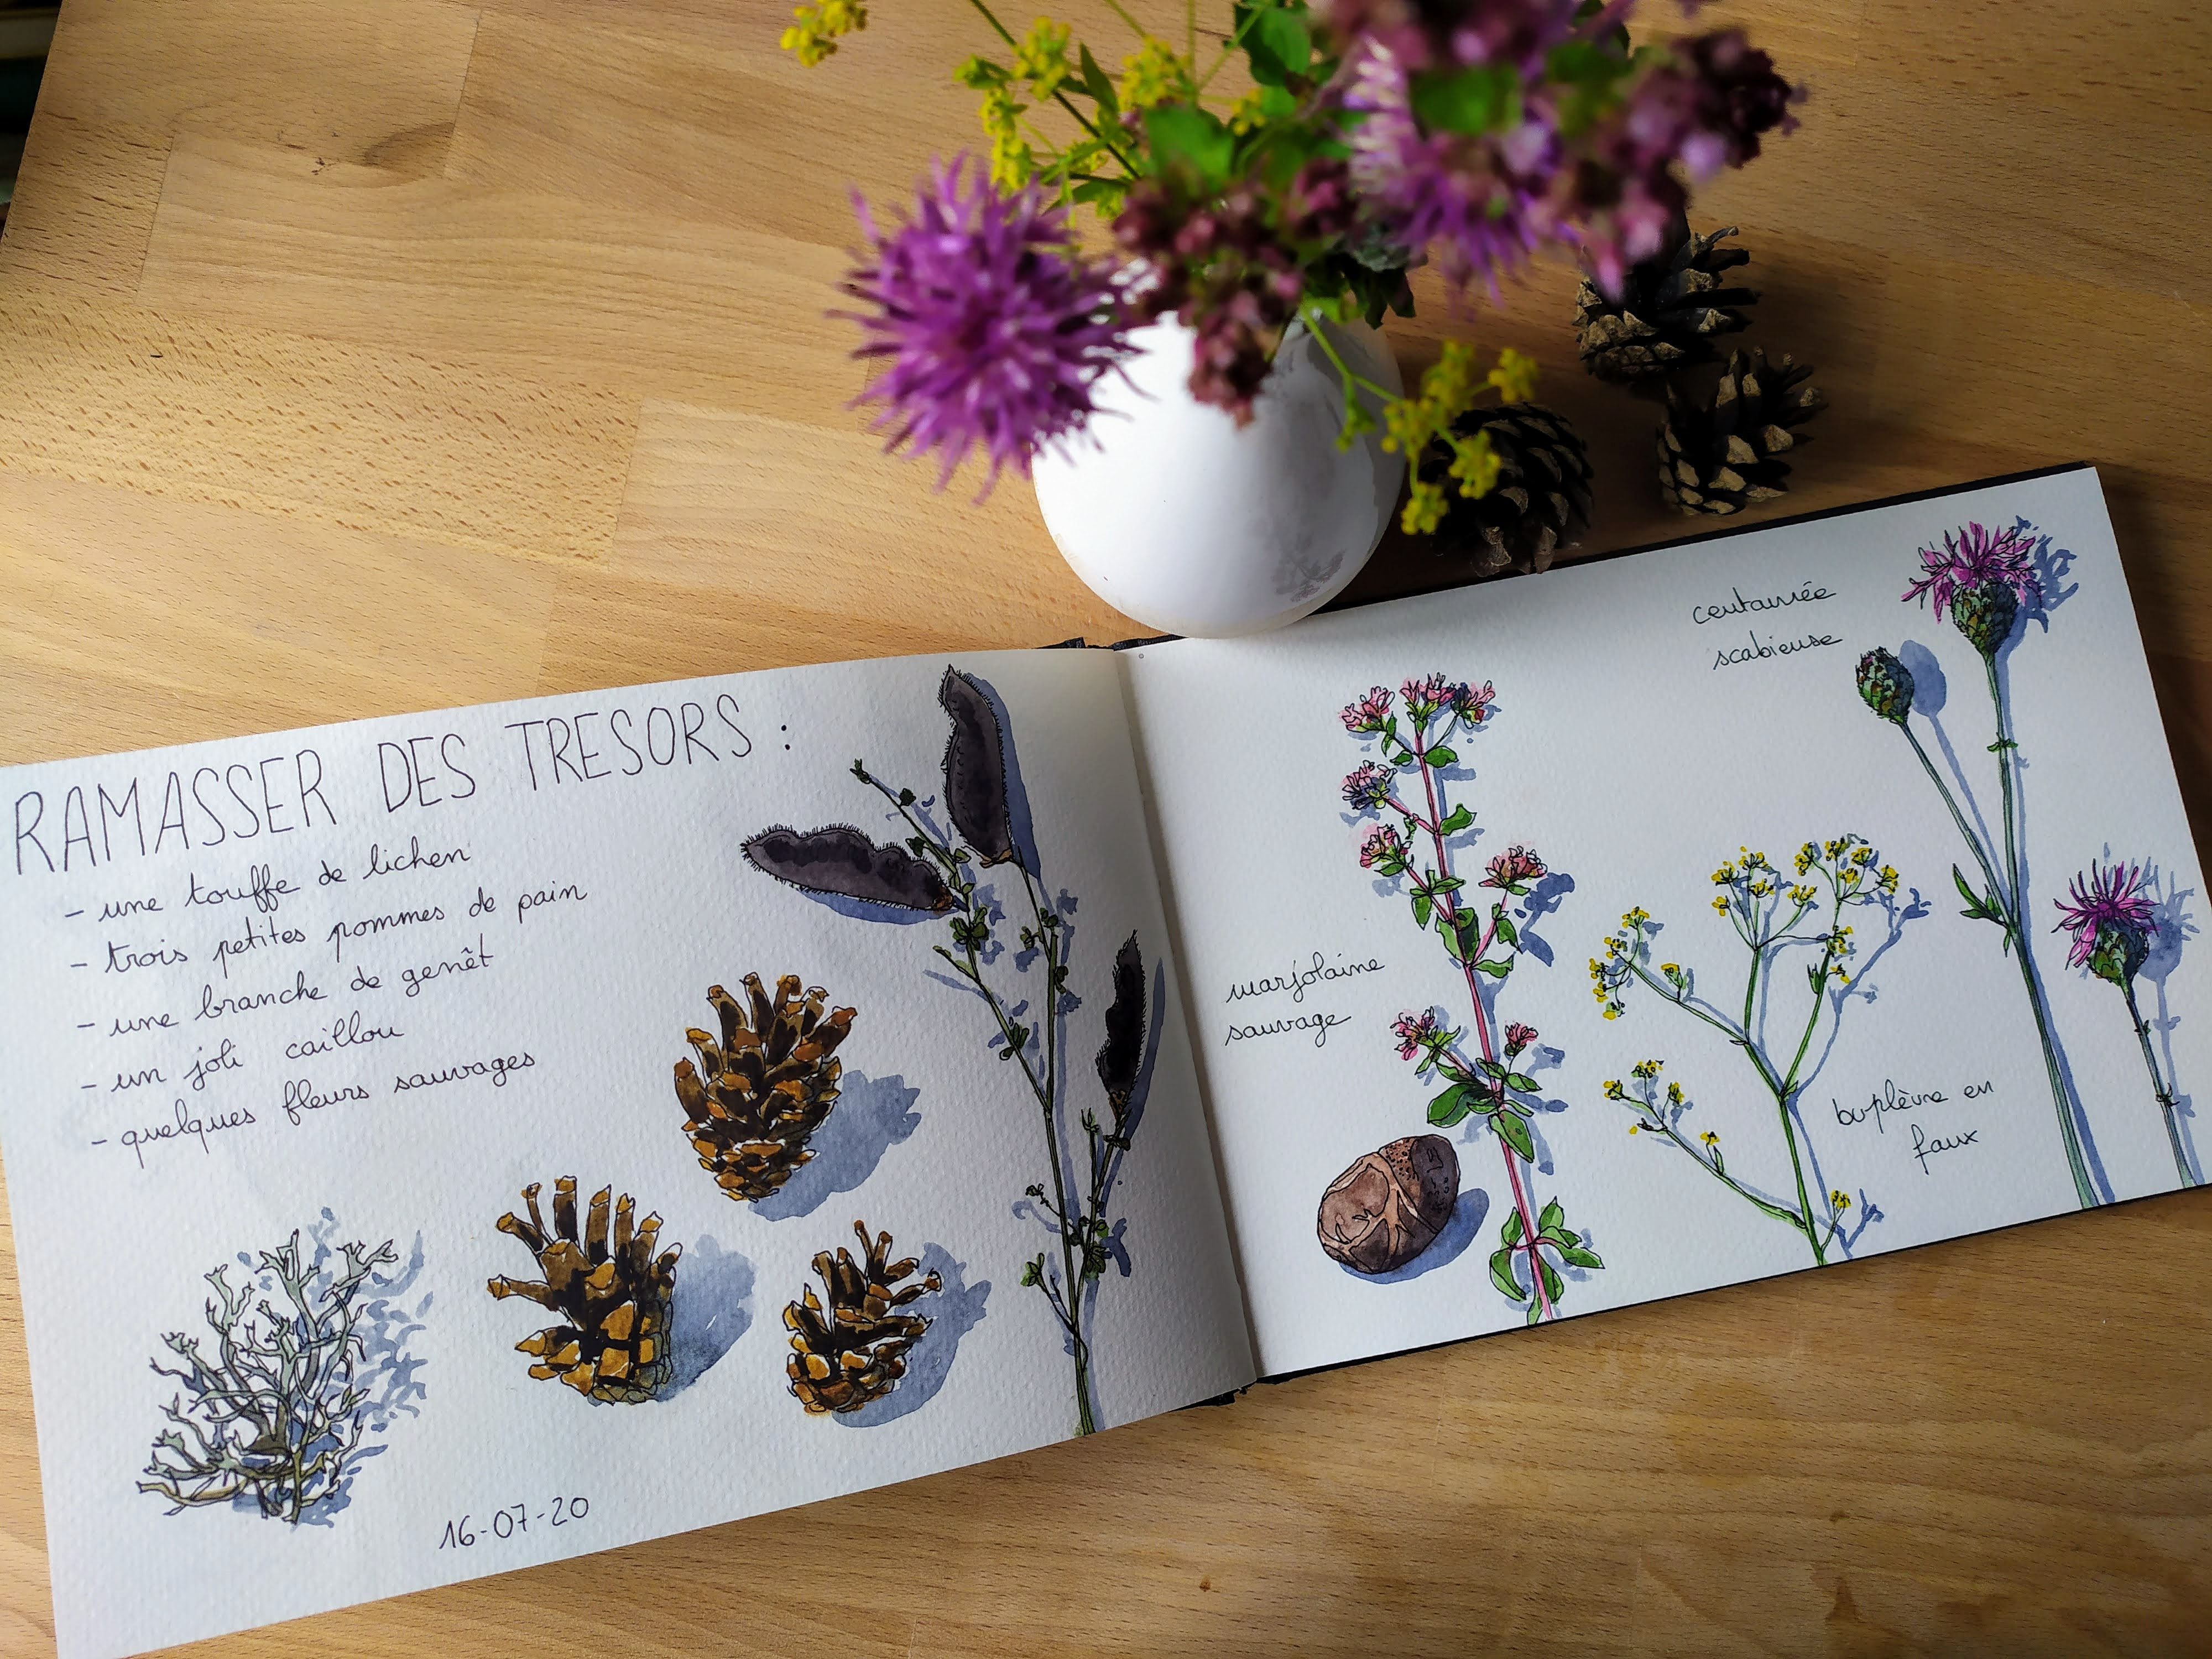 RAMASSER DES TRESORS :
- une touffe de lichen
- trois petites pommes de pain
- une branche de genêt
- un joli caillou
- quelques fleurs sauvages
16-07-20
centaurée
scabieuse
marjolaine
sauvage
buplèvre en
faux